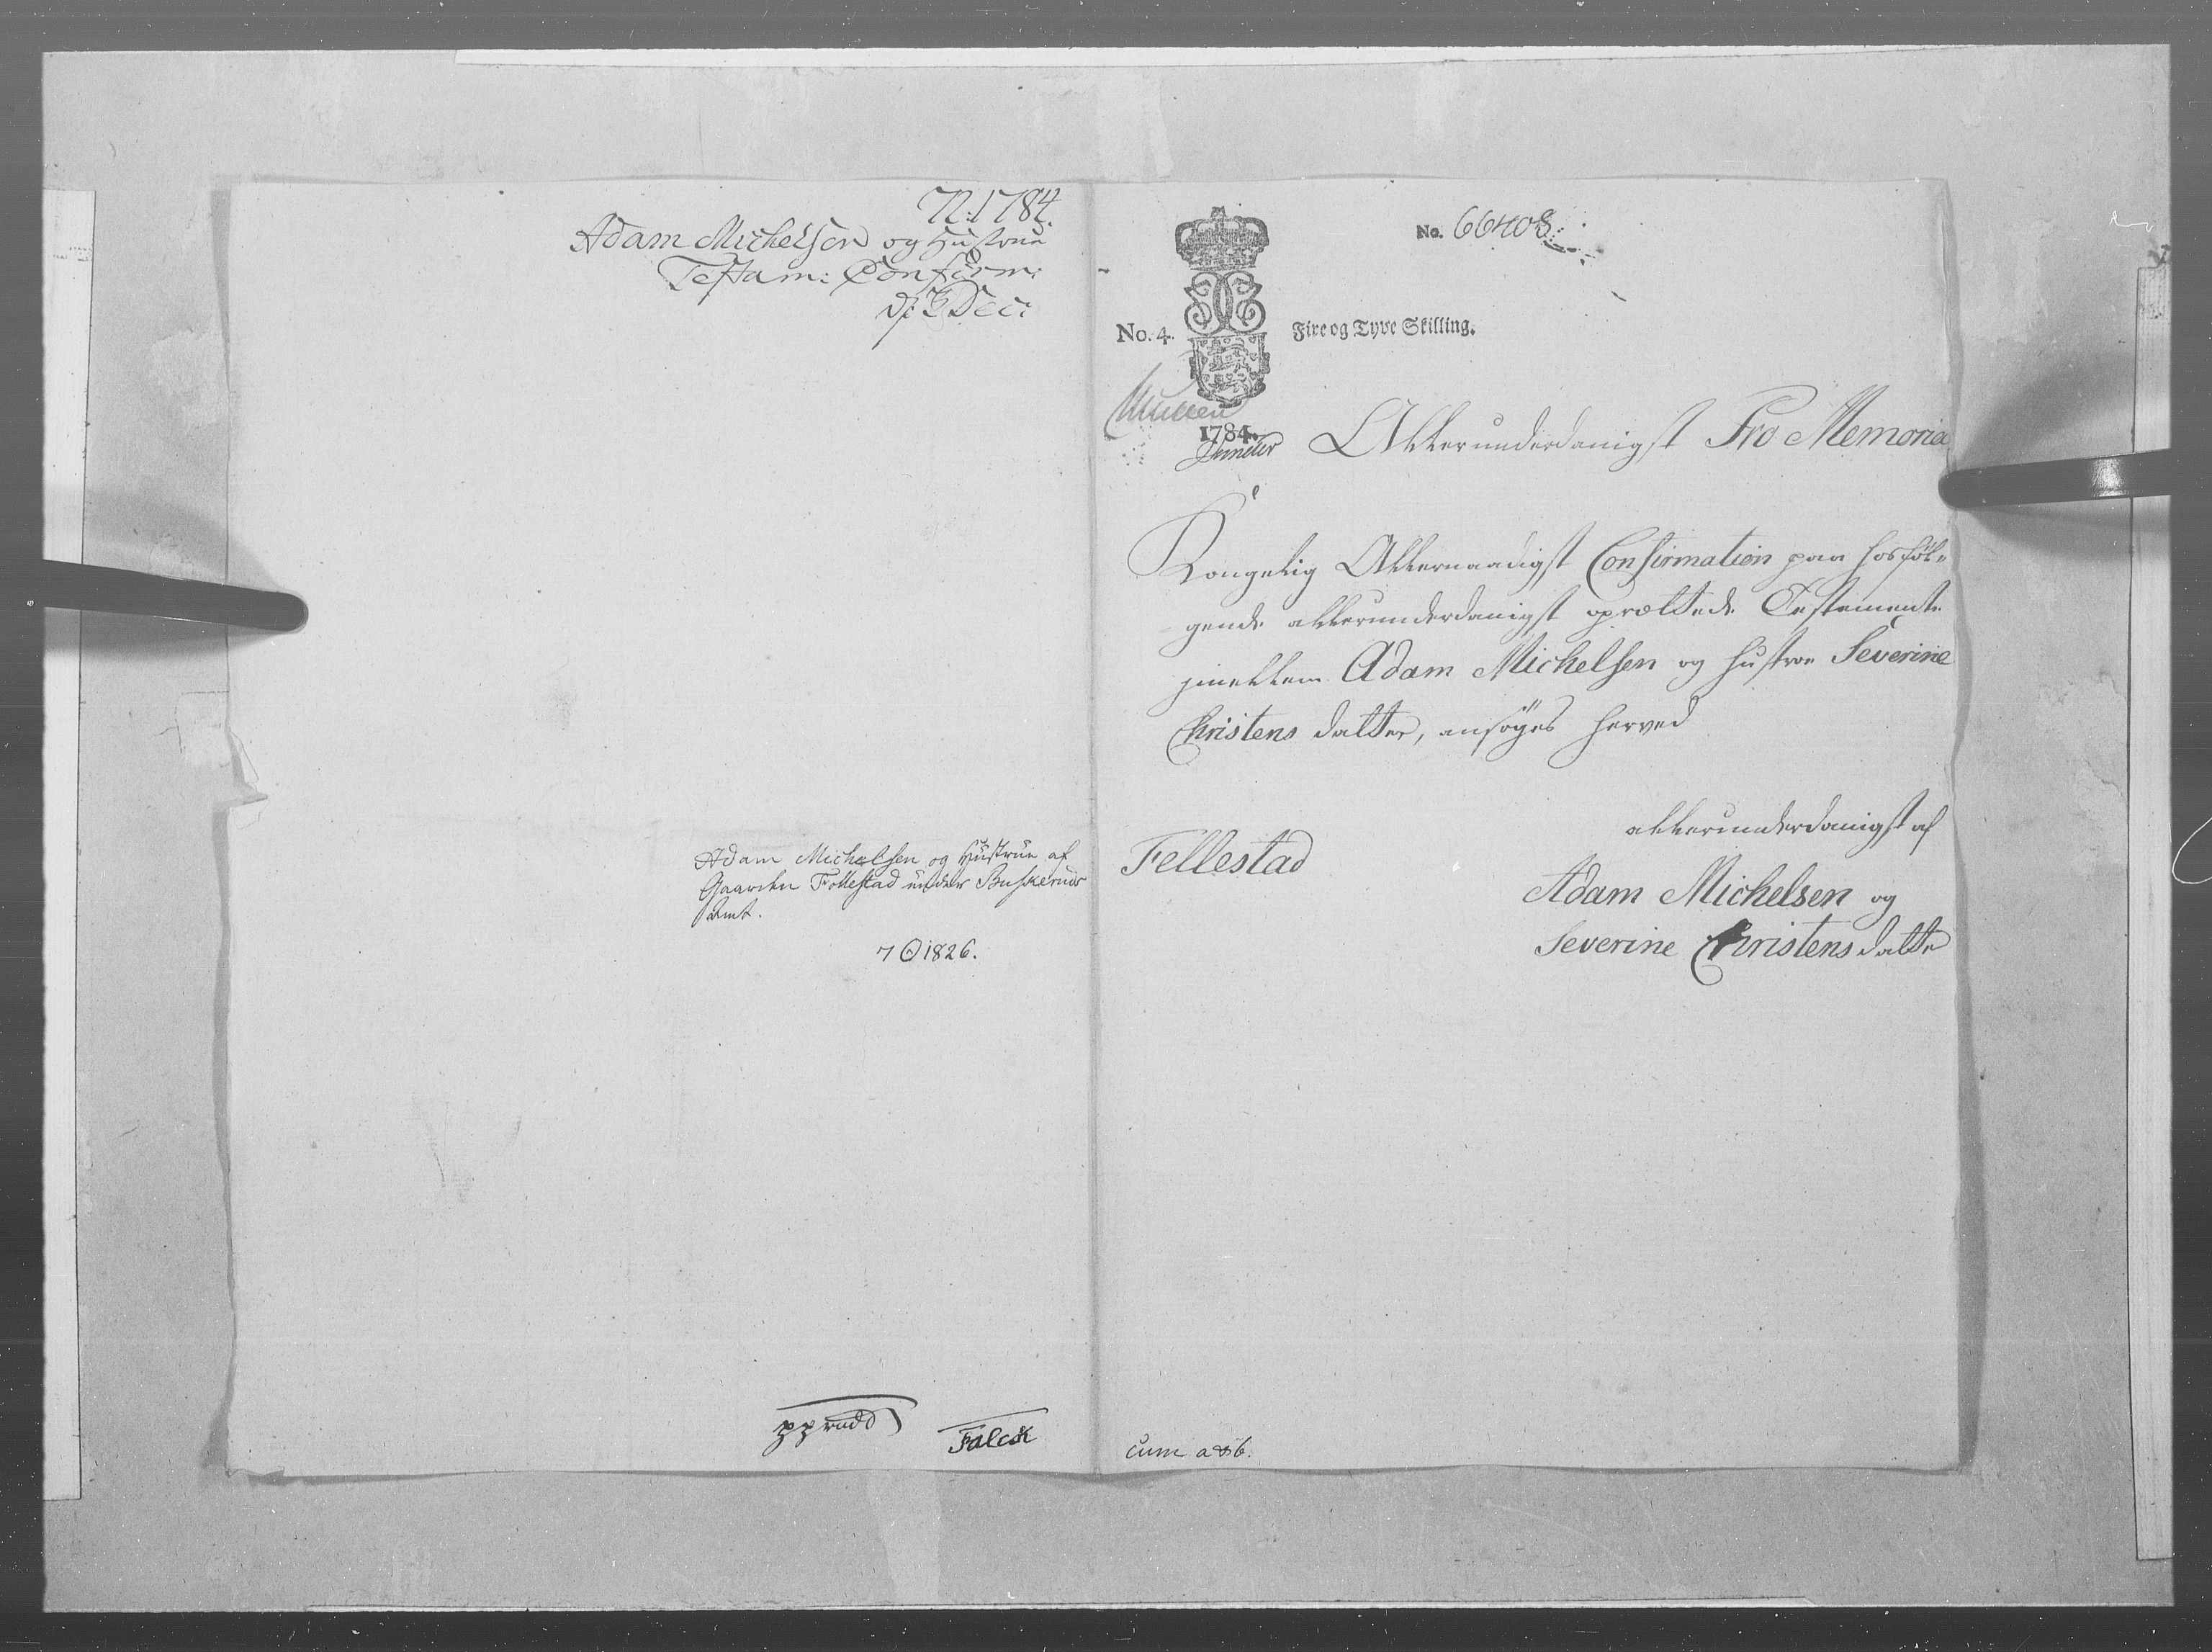 N: 1784.
Adam Michelsen og Hustrue
Testam: Confirm:
d: 3 Dec:
Adam Michelsen og Hüstrüe af
Gaarden Follestad ünder Buskeruds
Amt.
7 1826.
Falck
No. 66408
No. 4.
Fire og Tyve Skilling.
1784.
Allerunderdanigst Pro Memoria
Kongelig Allernaadigst Confirmation paa hosföl-
gende allerunderdanigst oprettede Testamente
imellem Adam Michelsen og Hustroe Severine
Christens datter, ansöges herved
allerunderdanigst af
Fellestad
Adam Michelsen og
Severine Christensdatte
cum a & b.